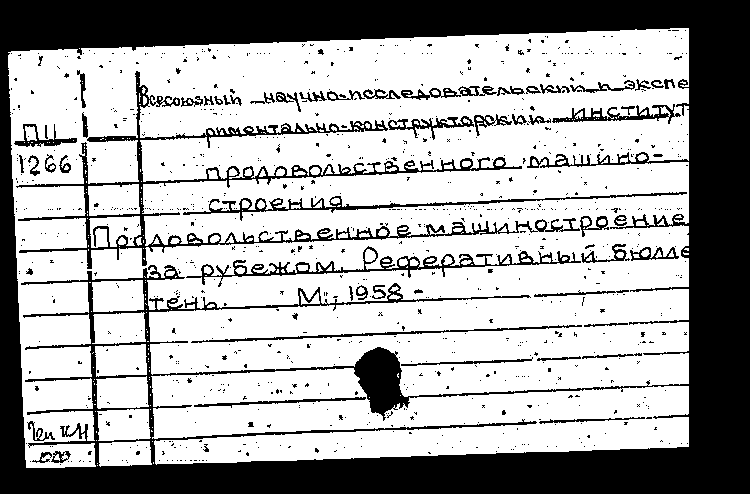 Всесоюзный научно-исследовательский и экспе
риментально-конструкторский институт
ПЦ
1266
продовольственного машино-
строения.
Продовольственное машиностроение
за рубежом. Реферативный бюлле
тень. М., 1958 -